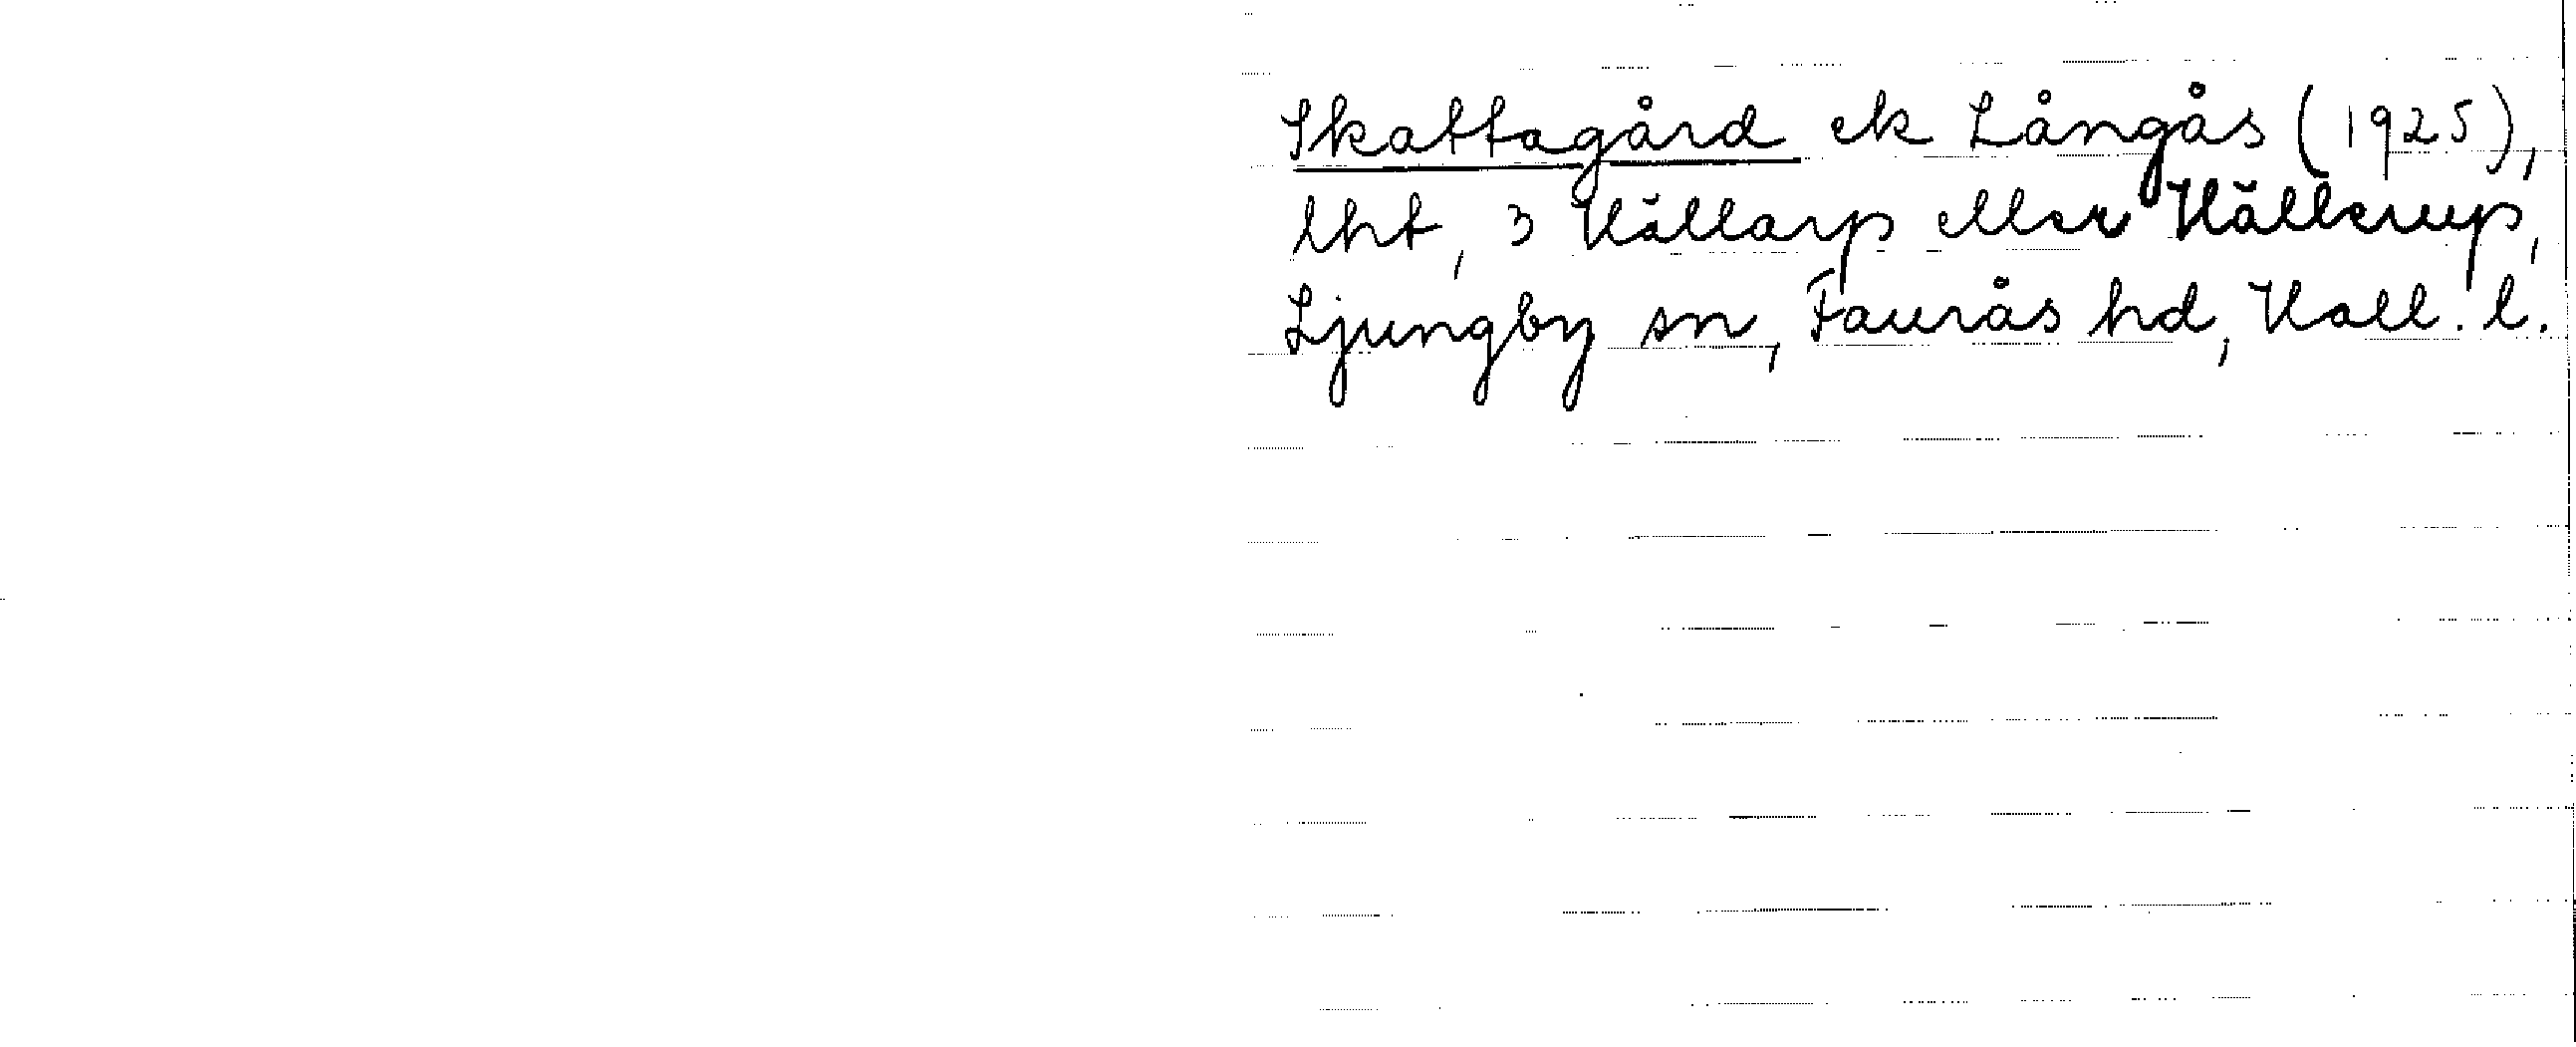 Skattagård ek Långås (1925),
lht, 3 Hällarp eller Hällerup,
Ljungby sn, Faurås hd, Hall. l.